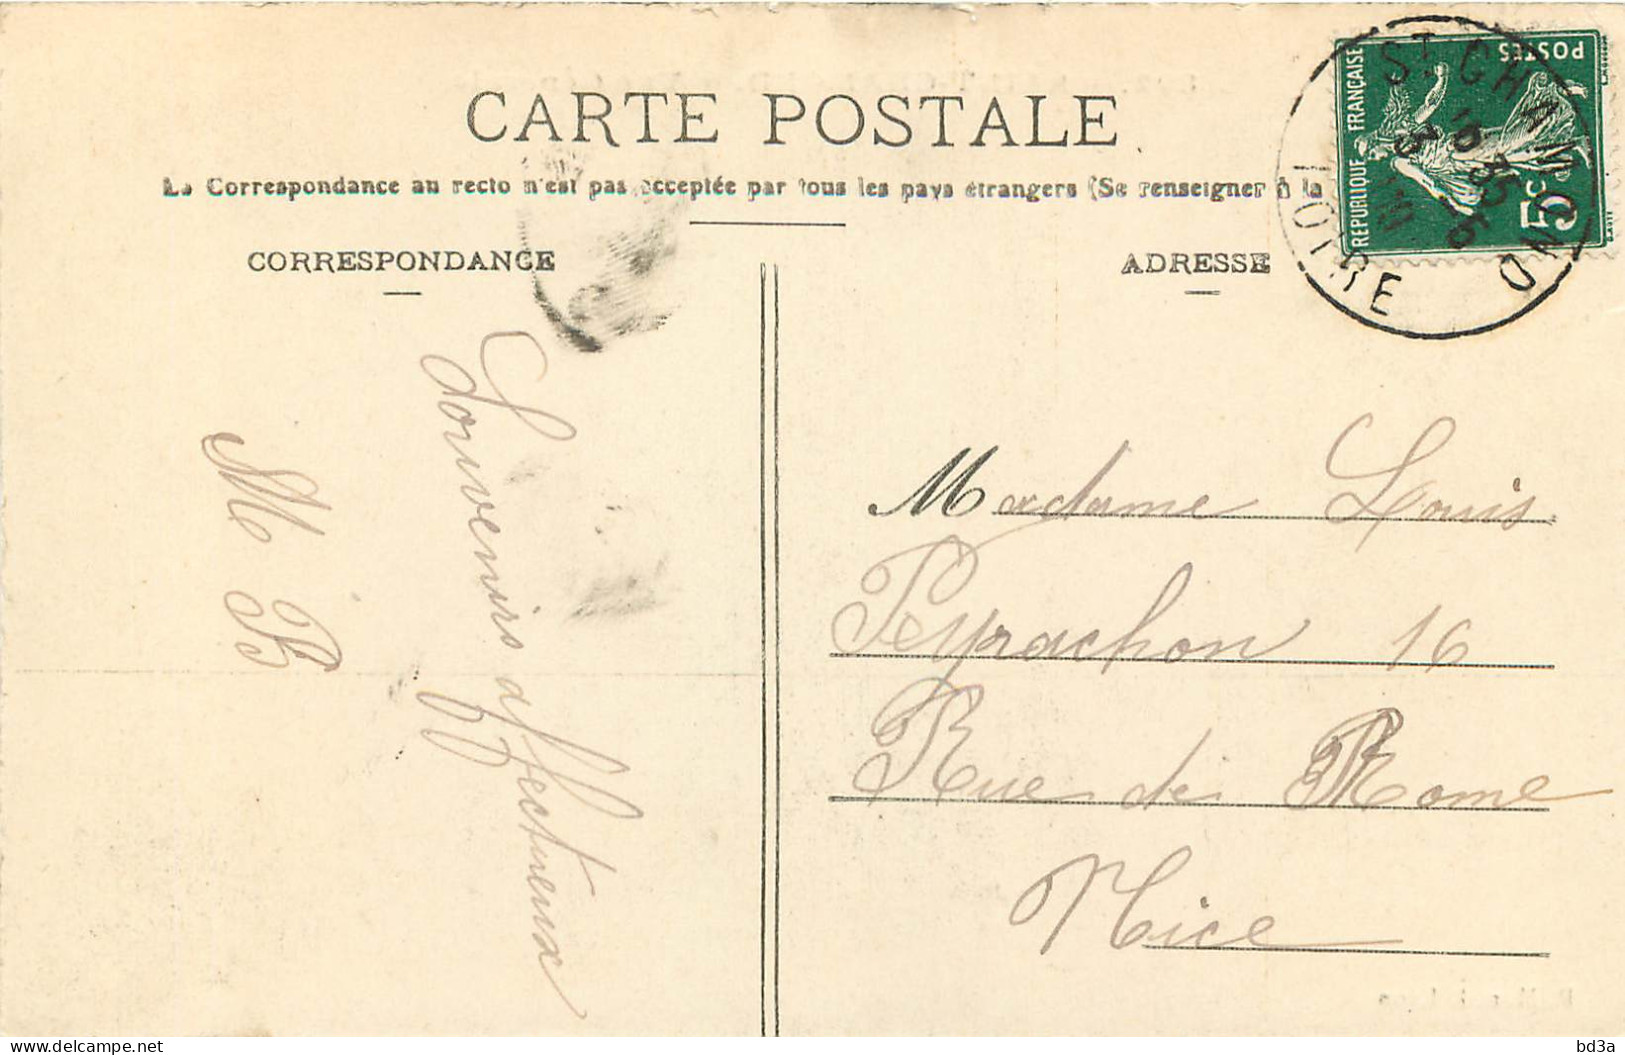 CARTE POSTALE
La Correspondance au recto n'est pas acceptée par tous les pays étrangers (Se renseigner à la
CORRESPONDANCE
ADRESSE
REPUBLIQUE FRANÇAISE
POSTES
5c
ST CHAMOND
LOIRE
Souvenirs affectueux
M B
Madame Louis
Peyrachon 16
Rue de Rome
Nice
bd3a